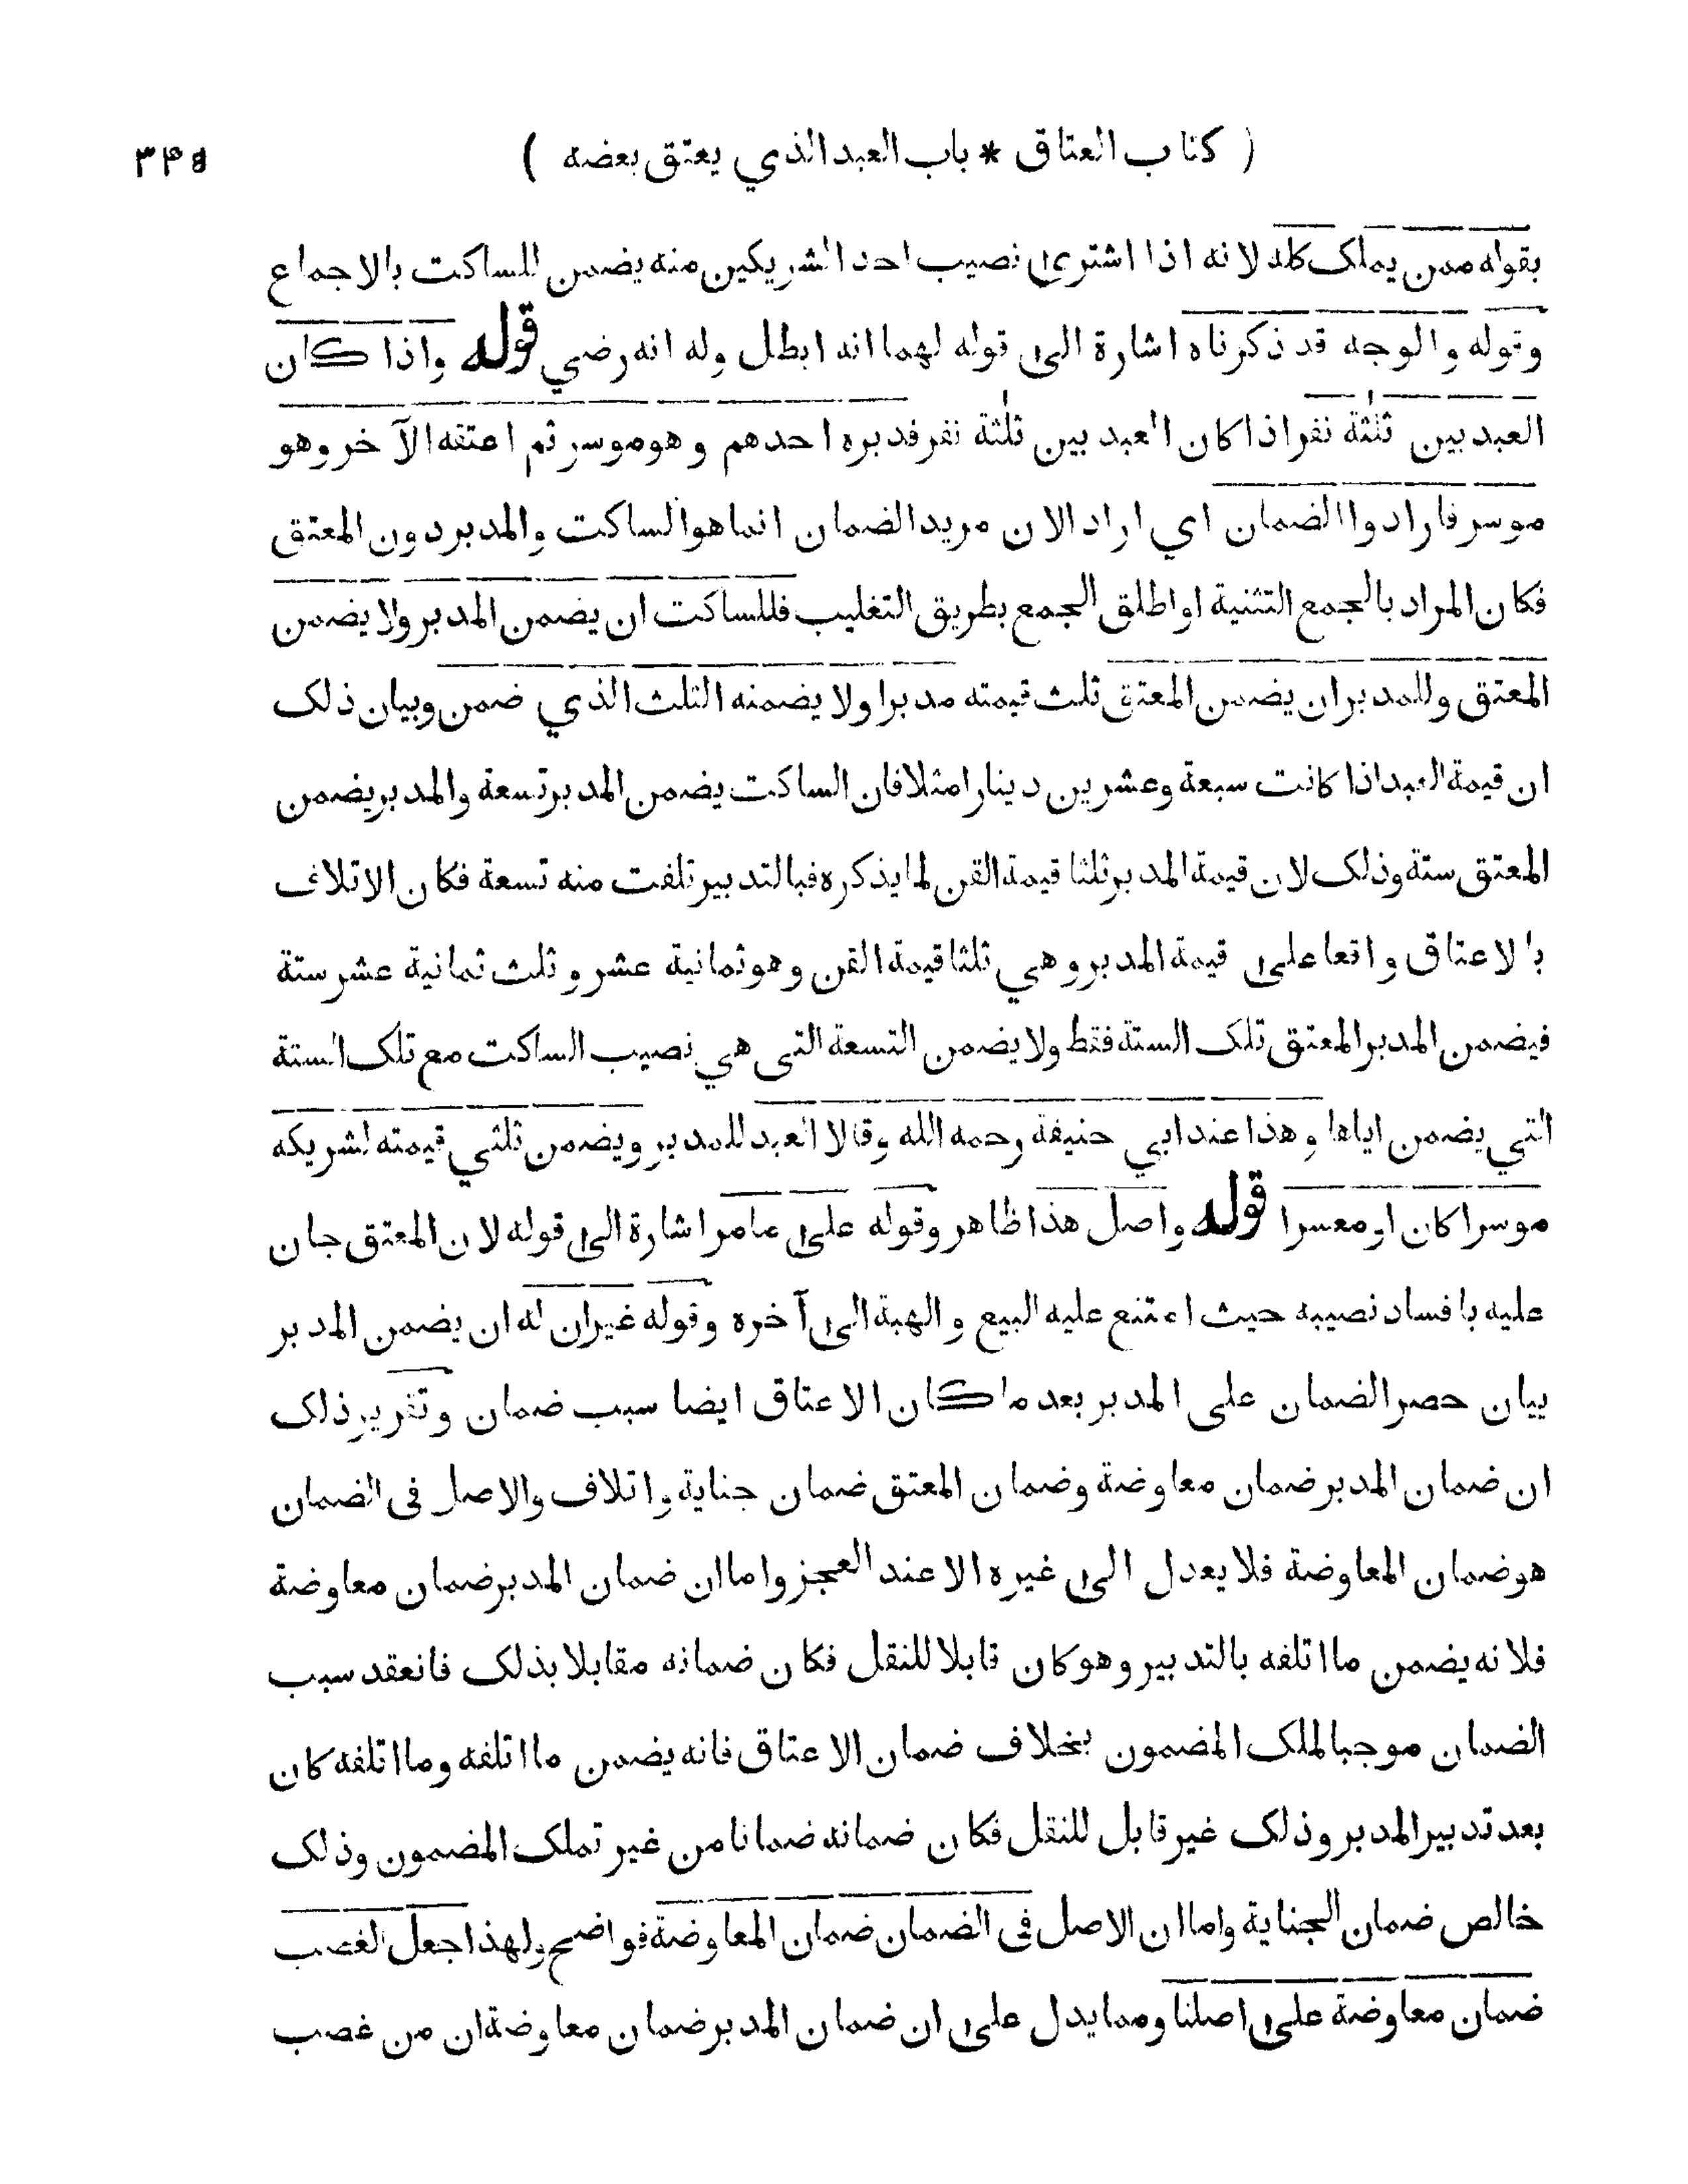 ( كتاب العتاق * باب العبد الذي يعتق بعضه ) ٣٤٥
بقوله ممن يملك كله لانه اذا اشترى نصيب احد الشريكين منه يضمن للساكت بالاجماع
وقوله والوجه قد ذكرناه اشارة الى قوله لهما انه ابطل وله انه رضي قوله واذا كان
العبد بين ثلثة نفر اذا كان العبد بين ثلثة نفر فدبره احدهم وهو موسر ثم اعتقه الآخر وهو
موسر فارادوا الضمان اي اراد الان مريد الضمان انما هو الساكت والمدبر دون المعتق
فكان المراد بالجمع التثنية او اطلق الجمع بطريق التغليب فللساكت ان يضمن المدبر ولا يضمن
المعتق وللمدبر ان يضمن المعتق ثلث قيمته مدبرا ولا يضمنه الثلث الذي ضمن وبيان ذلك
ان قيمة العبد اذا كانت سبعة وعشرين دينارا مثلا فان الساكت يضمن المدبر تسعة والمدبر يضمن
المعتق ستة وذلك لان قيمة المدبر ثلثا قيمة القن لما يذكره فبالتدبير تلفت منه تسعة فكان الاتلاف
بالاعتاق واقعا على قيمة المدبر وهي ثلثا قيمة القن وهو ثمانية عشر وثلث ثمانية عشر ستة
فيضمن المدبر المعتق تلك الستة فقط ولا يضمن التسعة التي هي نصيب الساكت مع تلك الستة
التي يضمن اياها وهذا عند ابي حنيفة رحمه الله وقالا العبد للمدبر ويضمن ثلثي قيمته لشريكه
موسرا كان او معسرا قوله واصل هذا ظاهر وقوله على ما مر اشارة الى قوله لان المعتق جان
عليه بافساد نصيبه حيث امتنع عليه البيع والهبة الى آخره وقوله غير ان له ان يضمن المدبر
بيان حصر الضمان على المدبر بعد ما كان الاعتاق ايضا سبب ضمان وتقرير ذلك
ان ضمان المدبر ضمان معاوضة وضمان المعتق ضمان جناية واتلاف والاصل فى الضمان
هو ضمان المعاوضة فلا يعدل الى غيره الا عند العجز واما ان ضمان المدبر ضمان معاوضة
فلانه يضمن ما اتلفه بالتدبير وهو كان قابلا للنقل فكان ضمانه مقابلا بذلك فانعقد سبب
الضمان موجبا لملك المضمون بخلاف ضمان الاعتاق فانه يضمن ما اتلفه وما اتلفه كان
بعد تدبير المدبر وذلك غير قابل للنقل فكان ضمانه ضمانا من غير تملك المضمون وذلك
خالص ضمان الجناية واما ان الاصل فى الضمان ضمان المعاوضة فواضح ولهذا جعل الغصب
ضمان معاوضة على اصلنا ومما يدل على ان ضمان المدبر ضمان معاوضة ان من غصب